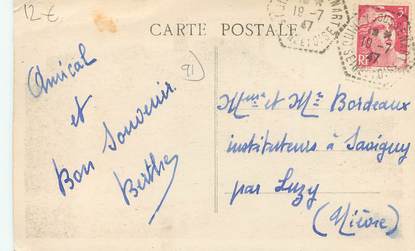 12 €
CARTE POSTALE
18-7
47
18-7
47
RF
91
Amical
et
Bon Souvenir.
Berthe
Mme et Mr Bordeaux
instituteurs à Savigny
par Luzy
(Nièvre)